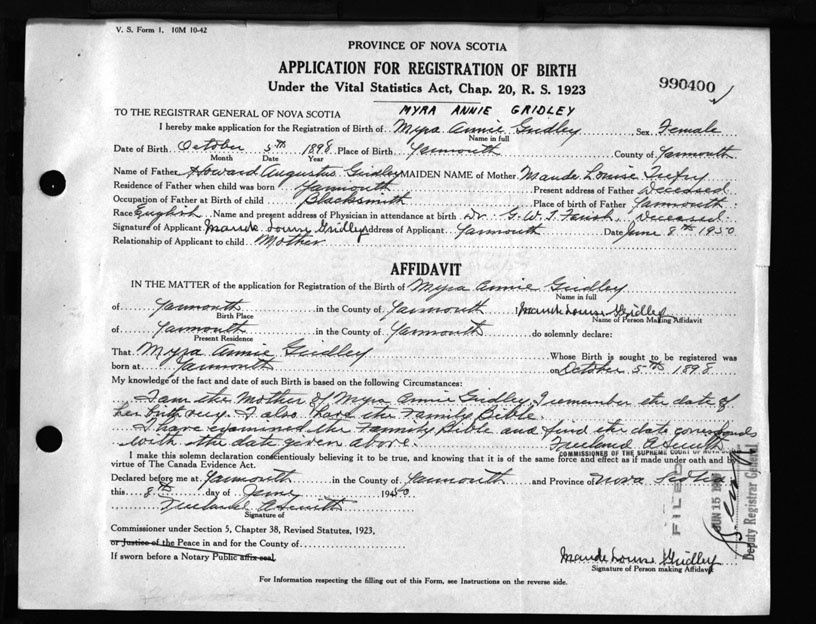 V. S. Form 1. 10M 10-42
PROVINCE OF NOVA SCOTIA
APPLICATION FOR REGISTRATION OF BIRTH
Under the Vital Statistics Act, Chap. 20, R. S. 1923
990400
MYRA ANNIE GRIDLEY
TO THE REGISTRAR GENERAL OF NOVA SCOTIA
I hereby make application for the Registration of Birth of Myra Annie Gridley Sex Female
Name in full
Date of Birth October 5th 1898 Place of Birth Yarmouth County of Yarmouth
Month Date Year
Name of Father Howard Augustus Gridley MAIDEN NAME of Mother Maude Louise Trefry
Residence of Father when child was born Yarmouth Present address of Father deceased
Occupation of Father at Birth of child Blacksmith Place of birth of Father Yarmouth
Race English Name and present address of Physician in attendance at birth Dr. G. W. T. Farish, Deceased.
Signature of Applicant Maude Louise Gridley Address of Applicant Yarmouth Date June 8th 1950
Relationship of Applicant to child Mother
AFFIDAVIT
IN THE MATTER of the application for Registration of the Birth of Myra Annie Gridley
Name in full
of Yarmouth in the County of Yarmouth Maude Louise Gridley
Birth Place Name of Person Making Affidavit
of Yarmouth in the County of Yarmouth do solemnly declare:
Present Residence
That Myra Annie Gridley Whose Birth is sought to be registered was
born at Yarmouth on October 5th 1898
My knowledge of the fact and date of such Birth is based on the following Circumstances:
I am the Mother of Myra Annie Gridley I remember the date of
her birth I also have the Family Bible.
I have examined the Family Bible and find the date corresponds
with the date given above. Freeland A Smith
COMMISSIONER OF THE SUPREME COURT OF NOVA SCOTIA
I make this solemn declaration conscientiously believing it to be true, and knowing that it is of the same force and effect as if made under oath and by
virtue of The Canada Evidence Act.
Declared before me at Yarmouth in the County of Yarmouth and Province of Nova Scotia
this 8th day of June 1950
Freeland A Smith
Signature of
Commissioner under Section 5, Chapter 38, Revised Statutes, 1923,
or Justice of the Peace in and for the County of
If sworn before a Notary Public affix seal
Maude Louise Gridley
Signature of Person making Affidavit
For Information respecting the filling out of this Form, see Instructions on the reverse side.
FILED
JUN 15
Deputy Registrar General